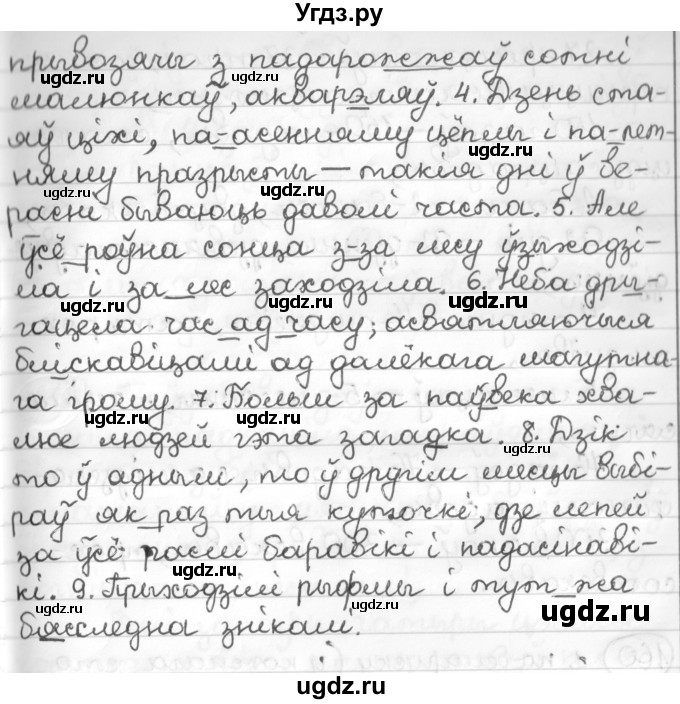 Угдз.ру
прывозячы з падарожжаў сотні
малюнкаў, акварэляў. 4. Дзень ста-
яў ціхі, па-асенняму цёплы і па-лет-
няму празрысты — такія дні ў ве-
расні бываюць даволі часта. 5. Але
ўсё роўна сонца з-за лесу ўзыходзі-
ла і за лес заходзіла. 6. Неба дры-
гацела час ад часу, асвятляючыся
бліскавіцамі ад далёкага магутна-
га грому. 7. Больш за паўвека хва-
люе людзей гэта загадка. 8. Дзік
то ў адным, то ў другім месцы выбі-
раў як раз тыя куточкі, дзе лепей
за ўсё раслі баравікі і падасінаві-
кі. 9. Прыходзілі рыфмы і тут жа
бясследна знікалі.
ugdz.ru